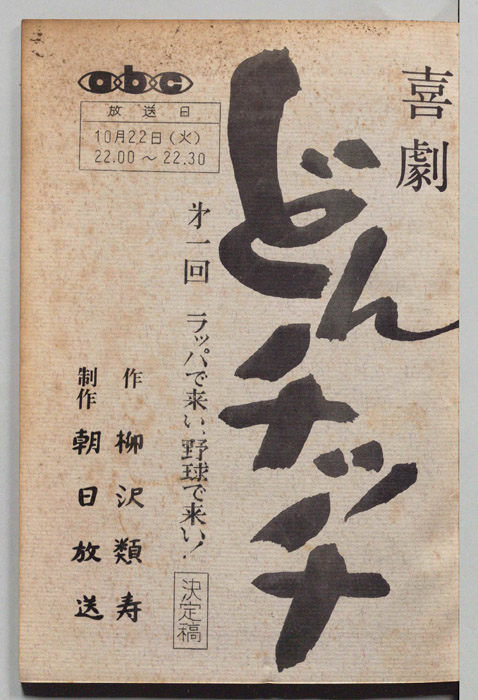 喜劇
どんチッチ
abc
放送日
10月22日(火)
22.00～22.30
才一回 ラッパで来い、野球で来い!
決定稿
作 柳沢類寿
制作 朝日放送